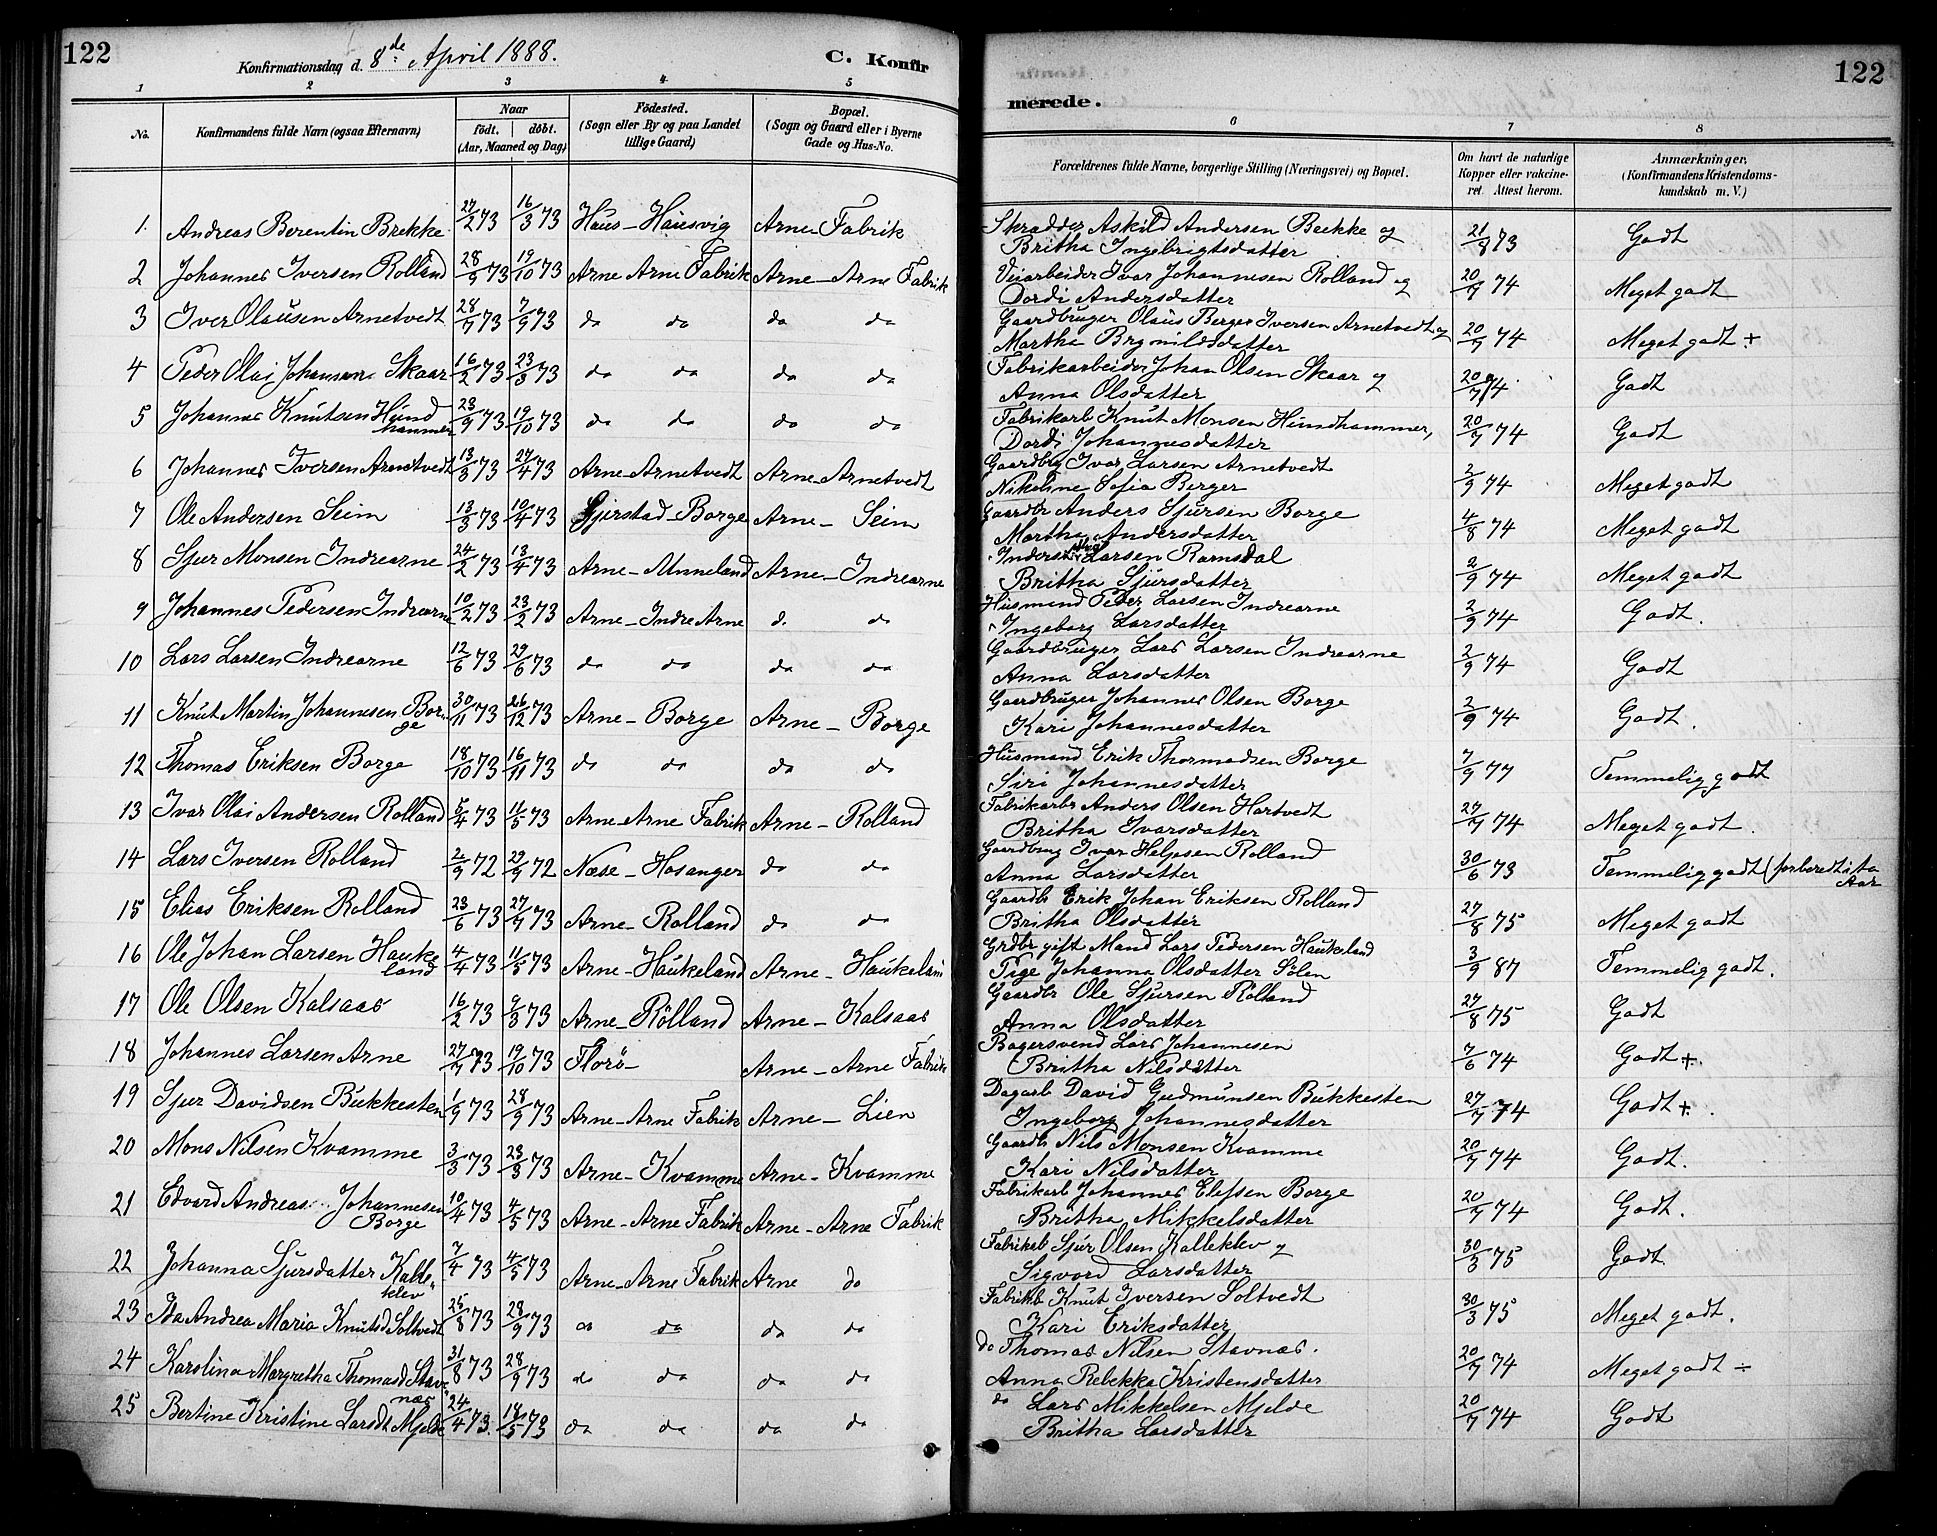 122
Konfirmationsdag d. 8de April 1888.
C. Konfir
merede.
122
1 2 3 4 5 6 7 8
No.
Konfirmandens fulde Navn (ogsaa Efternavn)
Naar
födt. döbt.
(Aar, Maaned og Dag)
Födested.
(Sogn eller By og paa Landet
tillige Gaard)
Bopæl.
(Sogn og Gaard eller i Byerne
Gade og Hus-No.
Forældrenes fulde Navne, borgerlige Stilling (Næringsvei) og Bopæl.
Om havt de naturlige
Kopper eller vakcine-
ret. Attest herom.
Anmærkninger.
(Konfirmandens Kristendoms-
kundskab m. V.)
1. Andreas Berentin Brekke 27/2 73 16/3 73 Haus - Hausvig Arne Fabrik Skrædder Askild Andersen Brekke og 21/8 73 Godt
Britha Ingebrigtsdatter
2 Johannes Iversen Rolland 28/9 73 19/10 73 Arne Arne Fabrik Arne - Arne Fabrik Veiarbeider Ivar Johannesen Rolland og 20/7 74 Meget godt
Dordi Andersdatter
3 Iver Olausen Arnetvedt 28/7 73 7/9 73 do do do do Gaardbruger Olaus Berger Iversen Arnetvedt og 20/7 74 Meget godt +
Martha Brynildsdatter
4 Peder Olai Johansen Skaar 16/2 73 23/3 73 do do do do Fabrikarbeider Johan Olsen Skaar og 20/7 74 Godt
Anna Olsdatter
5 Johannes Knutsen Hund 23/9 73 19/10 73 do do do do Fabrikarb Knut Monsen Hundhammer, 20/7 74 Godt
hammer Dordi Johannesdatter
6 Johannes Iversen Arnetvedt 13/3 73 27/4 73 Arne - Arnetvedt Arne - Arnetvedt Gaardbrg Ivar Larsen Arnetvedt 2/9 74 Meget godt
Nikoline Sofia Berger
7 Ole Andersen Seim 13/3 73 10/4 73 Gjerstad - Borge Arne - Seim Gaardbr Anders Sjursen Borge 4/8 74 Meget godt
Martha Andersdatter
8 Sjur Monsen Indrearne 24/2 73 13/4 73 Arne - Unneland Arne - Indrearne Larsen Ramsdal 2/9 74 Meget godt
Britha Sjursdatter
9 Johannes Pedersen Indrearne 10/2 73 23/2 73 Arne - Indre Arne d. do Husmand Peder Larsen Indrearne 2/9 74 Godt.
Ingeborg Larsdatter
10 Lars Larsen Indrearne 12/6 73 29/6 73 do do do do Gaardbruger Lars Larsen Indrearne 2/9 74 Godt
Anna Larsdatter
11 Knut Martin Johannesen Bor- 30/11 73 26/12 73 Arne - Borge Arne - Borge Gaardbruger Johannes Olsen Borge 2/9 74 Godt.
ge Kari Johannesdatter
12 Thomas Eriksen Borge 18/10 73 16/11 73 do do do do Husmand Erik Thormodsen Borge 7/9 77 Temmelig godt
Siri Johannesdatter
13 Ivar Olai Andersen Rolland 5/4 73 11/5 73 Arne - Arne Fabrik Arne - Rolland Fabrikarbr Anders Olsen Hartvedt 27/7 74 Meget godt.
Britha Ivarsdatter
14 Lars Iversen Rolland 2/9 72 29/9 72 Næse - Hosanger do do Gaardbrug Ivar Helgesen Rolland 30/6 73 Temmelig godt (forberedt i to
Anna Larsdatter Aar
15 Elias Eriksen Rolland 23/6 73 27/7 73 Arne - Rolland do do Gaardbr Erik Johan Eriksen Rolland 27/8 75 Meget godt
Britha Olsdatter
16 Ole Johan Larsen Hauke 4/4 73 11/5 73 Arne - Haukeland Arne - Haukeland Grdbr gift Mand Lars Pedersen Haukeland 3/9 87 Temmelig godt.
land Pige Johanna Olsdatter Solen
17 Ole Olsen Kalsaas 16/2 73 9/3 73 Arne - Rolland Arne - Kalsaas Gaardbr Ole Sjursen Rolland 27/8 75 Godt
Anna Olsdatter
18 Johannes Larsen Arne 27/7 73 19/10 73 Florø - Arne - Arne Fabrik Bagersvend Lars Johannesen 7/6 74 Godt +
Britha Nilsdatter
19 Sjur Davidsen Bukkesten 1/9 73 28/9 73 Arne - Arne Fabrik Arne - Lien Dagarb David Gudmunsen Bukkesten 27/7 74 Godt +.
Ingeborg Johannesdatter
20 Mons Nilsen Kvamme 3/3 73 23/3 73 Arne - Kvamme Arne - Kvamme Gaardb Nils Monsen Kvamme 20/7 74 Godt.
Kari Nilsdatter
21 Edvard Andreas Johannesen 10/4 73 4/5 73 Arne - Arne Fabrik Arne - Arne Fabrik Fabrikarb Johannes Elefsen Borge 20/7 74 Godt.
Borge Britha Mikkelsdatter
22 Johanna Sjursdatter Kalle- 7/4 73 4/5 73 Arne - Arne Fabrik Arne do Fabrikab Sjur Olsen Kalleklev og 30/3 75 Godt.
klev Sigvord Larsdatter
23 Ida Andrea Maria Knutsd Soltvedt 25/8 73 28/9 73 do do do do Fabrikb Knut Iversen Soltvedt 30/3 75 Meget godt.
Kari Eriksdatter
24 Karolina Margretha Thomasd Stav 31/8 73 28/9 73 do do do do do Thomas Nilsen Stavnas. 20/7 74 Meget godt ÷
nas Anna Rebekka Kristensdatter
25 Bertine Kristine Larsdt Mjelde 24/4 73. 18/5 73 do do do do do Lars Mikkelsen Mjelde 20/7 74 Godt
Britha Larsdatter